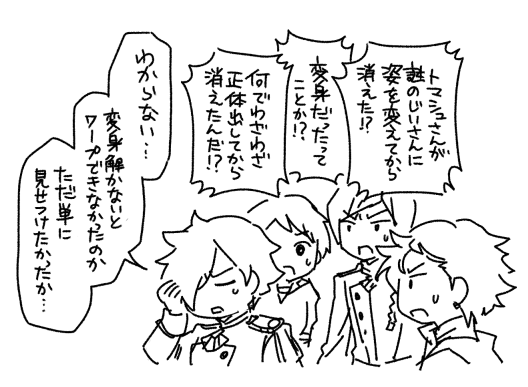 トマシュさんが
甦のじいさんに
姿を変えてから
消えた!?
変身だったって
ことか!?
何でわざわざ
正体出してから
消えたんだ!?
わからない…
変身解かないと
ワープできなかったのか
ただ単に
見せつけたかったか…